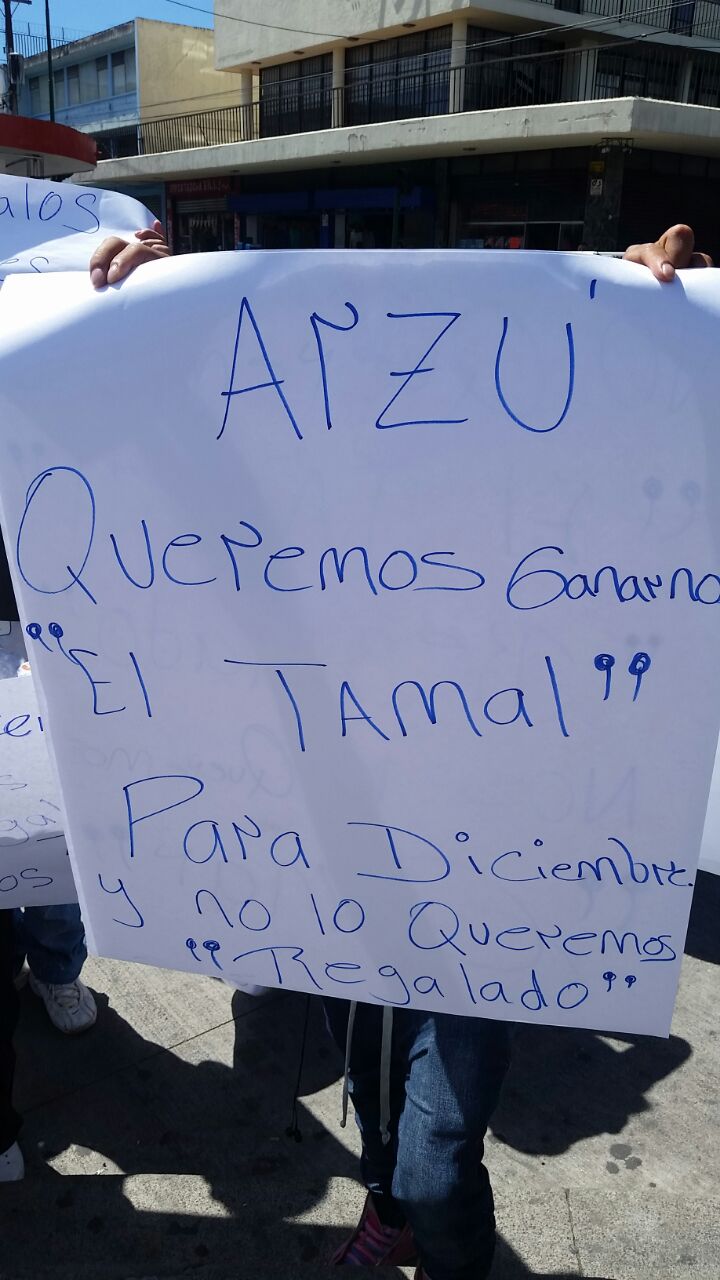 alos
Arzú
Queremos Ganarno
"El Tamal"
Para Diciembre.
y no lo Queremos
"Regalado"